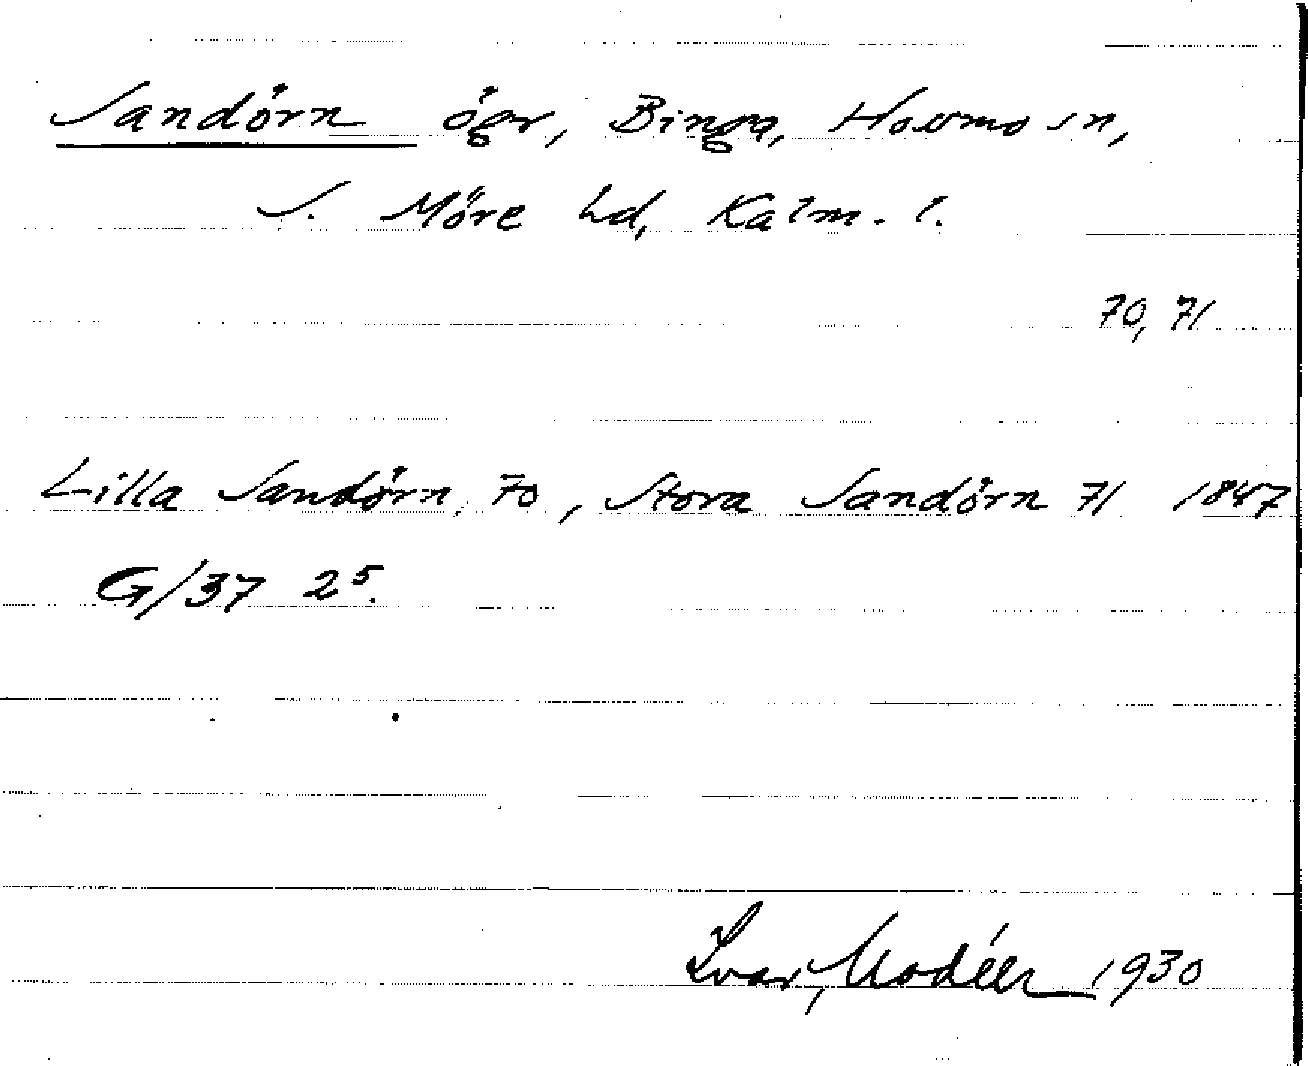 Sandörn ögr, Binga, Hossmo sn,
S. Möre hd, Kalm. l.
70, 71
Lilla Sandörn, 70, Stora Sandörn 71 1847
G/37 2⁵.
Ivar Modéer 1930